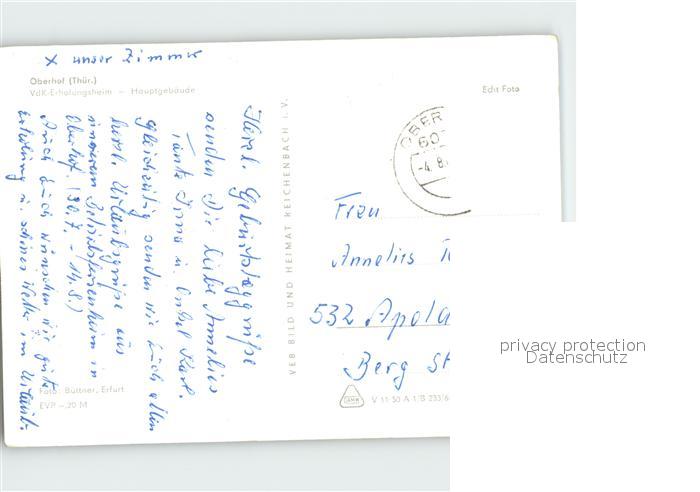 x unser Zimmer
Oberhof (Thür.)
VdK-Erholungsheim – Hauptgebäude
Edit Foto
Herzl. Geburtstagsgrüße
senden Dir liebe Annelies
Tante Irma u. Onkel Karl.
Gleichzeitig senden wir Euch allen
herzl. Urlaubsgrüße aus
unserem Betriebsferienheim in
Oberhof. (30.7. – 14.8.)
Auch Euch wünschen wir gute
Erholung u. schönes Wetter im Urlaub.
VEB BILD UND HEIMAT REICHENBACH i. V.
OBER
60
-4.8.
Frau
Annelies
532 Apolda
Berg St
Foto: Büttner, Erfurt
EVP –,20 M
V 11 50 A 1/B 233/6
privacy protection
Datenschutz